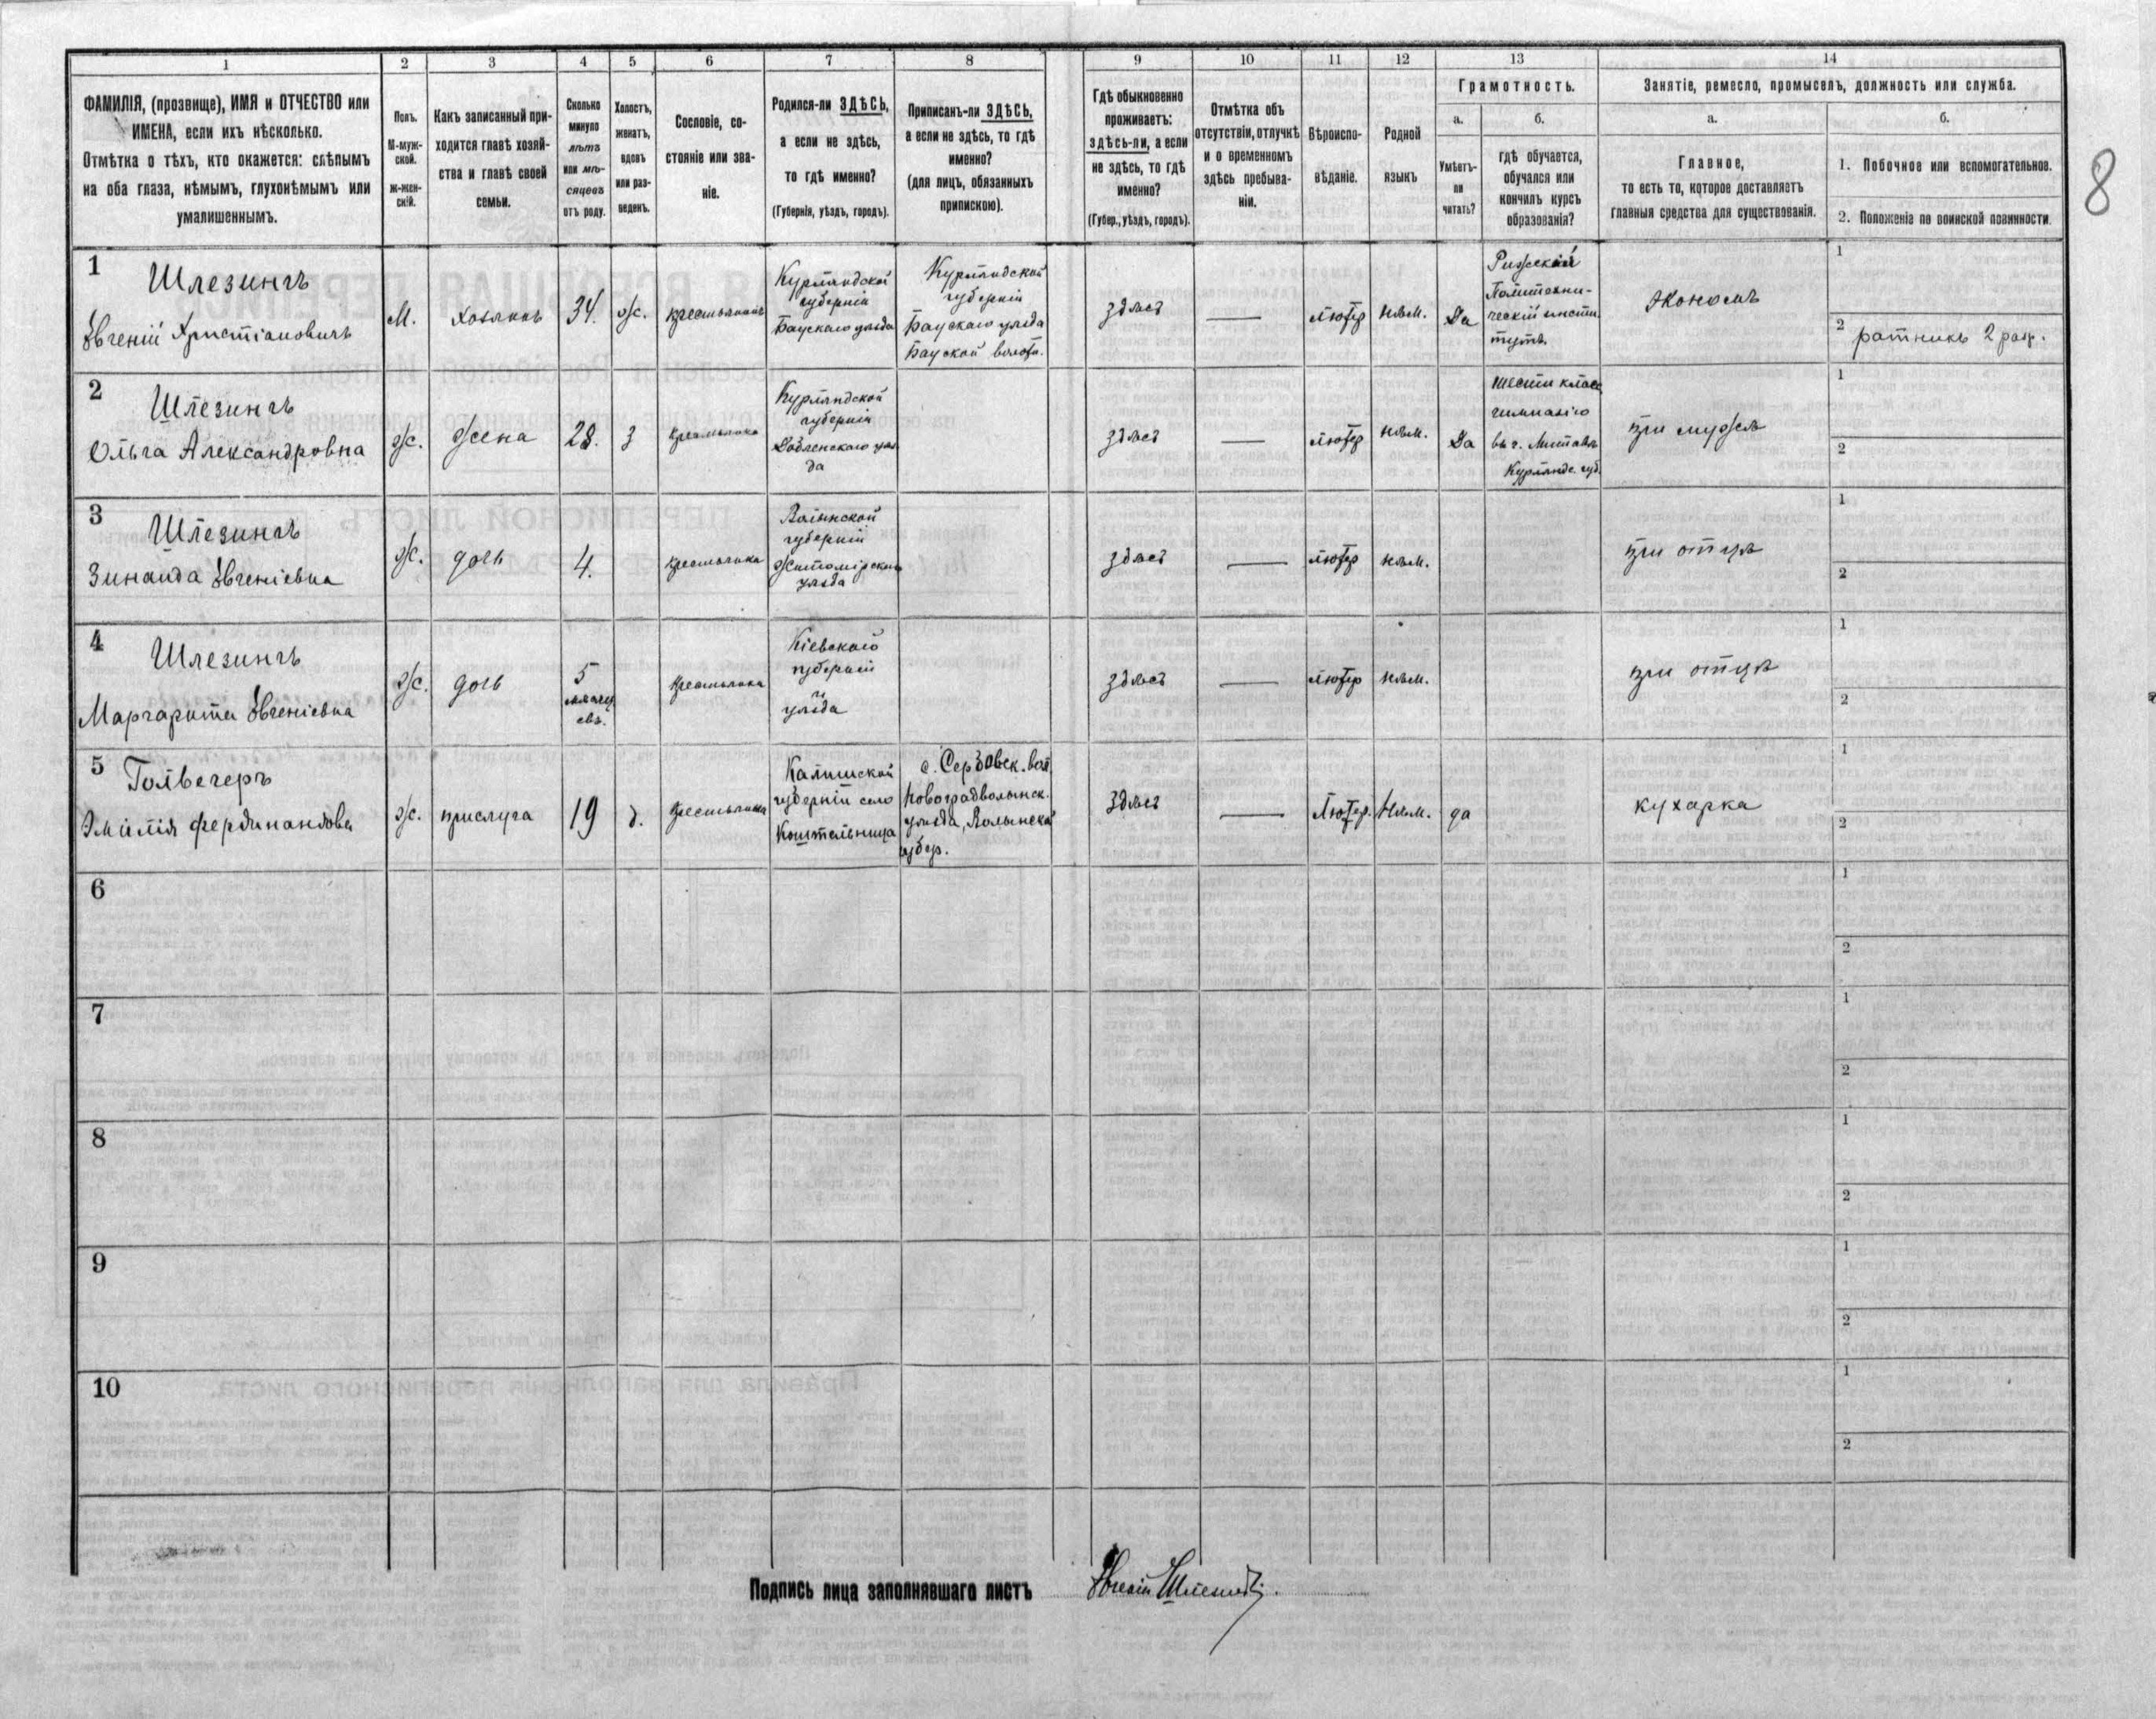 1 2 3 4 5 6 7 8 9 10 11 12 13 14
ФАМИЛІЯ, (прозвище), ИМЯ и ОТЧЕСТВО или
ИМЕНА, если ихъ нѣсколько.
Отмѣтка о тѣхъ, кто окажется: слѣпымъ
на оба глаза, нѣмымъ, глухонѣмымъ или
умалишеннымъ.
Полъ.
М-муж-
ской.
ж-жен-
скій.
Какъ записанный при-
ходится главѣ хозяй-
ства и главѣ своей
семьи.
Сколько
минуло
лѣтъ
или мѣ-
сяцевъ
отъ роду.
Холостъ,
женатъ,
вдовъ
или раз-
веденъ.
Сословіе, со-
стояніе или зва-
ніе.
Родился-ли ЗДѢСЬ,
а если не здѣсь,
то гдѣ именно?
(Губернія, уѣздъ, городъ).
Приписанъ-ли ЗДѢСЬ,
а если не здѣсь, то гдѣ
именно?
(для лицъ, обязанныхъ
припискою).
Гдѣ обыкновенно
проживаетъ:
здѣсь-ли, а если
не здѣсь, то гдѣ
именно?
(Губер., уѣздъ, городъ).
Отмѣтка объ
отсутствіи, отлучкѣ
и о временномъ
здѣсь пребыва-
ніи.
Вѣроиспо-
вѣданіе.
Родной
языкъ
Грамотность.
а.
Умѣетъ-
ли
читать?
б.
гдѣ обучается,
обучался или
кончилъ курсъ
образованія?
Занятіе, ремесло, промыселъ, должность или служба.
а.
Главное,
то есть то, которое доставляетъ
главныя средства для существованія.
б.
1. Побочное или вспомогательное.
2. Положеніе по воинской повинности.
8
1
Шлезингъ
Евгеній Христіановичъ
М.
хозяинъ
34.
ж.
крестьянинъ
Курляндской
губерніи
Баускаго уѣзда
Курляндской
губерніи
Баускаго уѣзда
Бауской волости.
здѣсь
—
лютер
нѣм.
Да
Рижскій
Политехни-
ческій инсти
тутъ
экономъ
1
2 ратникъ 2 раз.
2
Шлезингъ
Ольга Александровна
ж.
жена
28.
з
крестьянка
Курляндской
губерніи
Добленскаго уѣз
да
здѣсь
—
лютер
нѣм.
Да
шести класс
гимназію
въ г. Митавѣ
Курлянд. губ.
при мужѣ
1
2
3
Шлезингъ
Зинаида Евгеніевна
ж.
дочь
4.
крестьянка
Волынской
губерніи
Житомірскаго
уѣзда
здѣсь
—
лютер
нѣм.
при отцѣ
1
2
4
Шлезингъ
Маргарита Евгеніевна
ж.
дочь
5
мѣсяц
евъ.
крестьянка
Кіевскаго
губерніи
уѣзда
здѣсь
—
лютер
нѣм.
при отцѣ
1
2
5
Гольвегеръ
Эмилія Фердинандова
ж.
прислуга
19
д.
крестьянка
Калишской
губерніи село
Коштельница
волынск.
уѣзда, Волынской
губер.
здѣсь
—
Лютер.
Нѣм.
да
кухарка
1
2
6
1
2
7
1
2
8
1
2
9
1
2
10
1
2
Подпись лица заполнявшаго листъ
Евгеній Шлезингъ